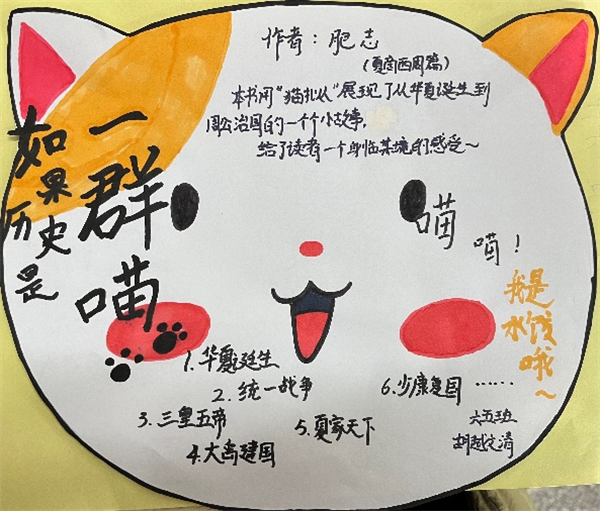 如果历史是
一群喵
作者：肥志
（夏商西周篇）
本书用“猫扑从”展现了从华夏诞生到
周公治国的一个个小故事，
给了读者一个身临某境的感受～
喵
喵！
我是
水饺
哦～
1.华夏诞生
2.统一战争
3.三皇五帝
4.大禹建国
5.夏家天下
6.少康复国……
六五班